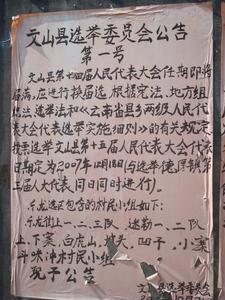 文山县选举委员会公告
第一号
文山县第十四届人民代表大会任期即将
届满,应进行换届选,根据宪法、地方组
织法、选举法和《云南省县乡两级人民代
表大会代表选举实施细则》的有关规定,
投票选举文山县第十五届人民代表大会代表
日期定为2007年12月18日
人大代表同日同时进行)。
示龙选区包含的村民小组如下:
示龙街上一、二、三队,
上、下寨、白虎山、坡头、凹子、小寨
斗咪冲村民小组
现予公告